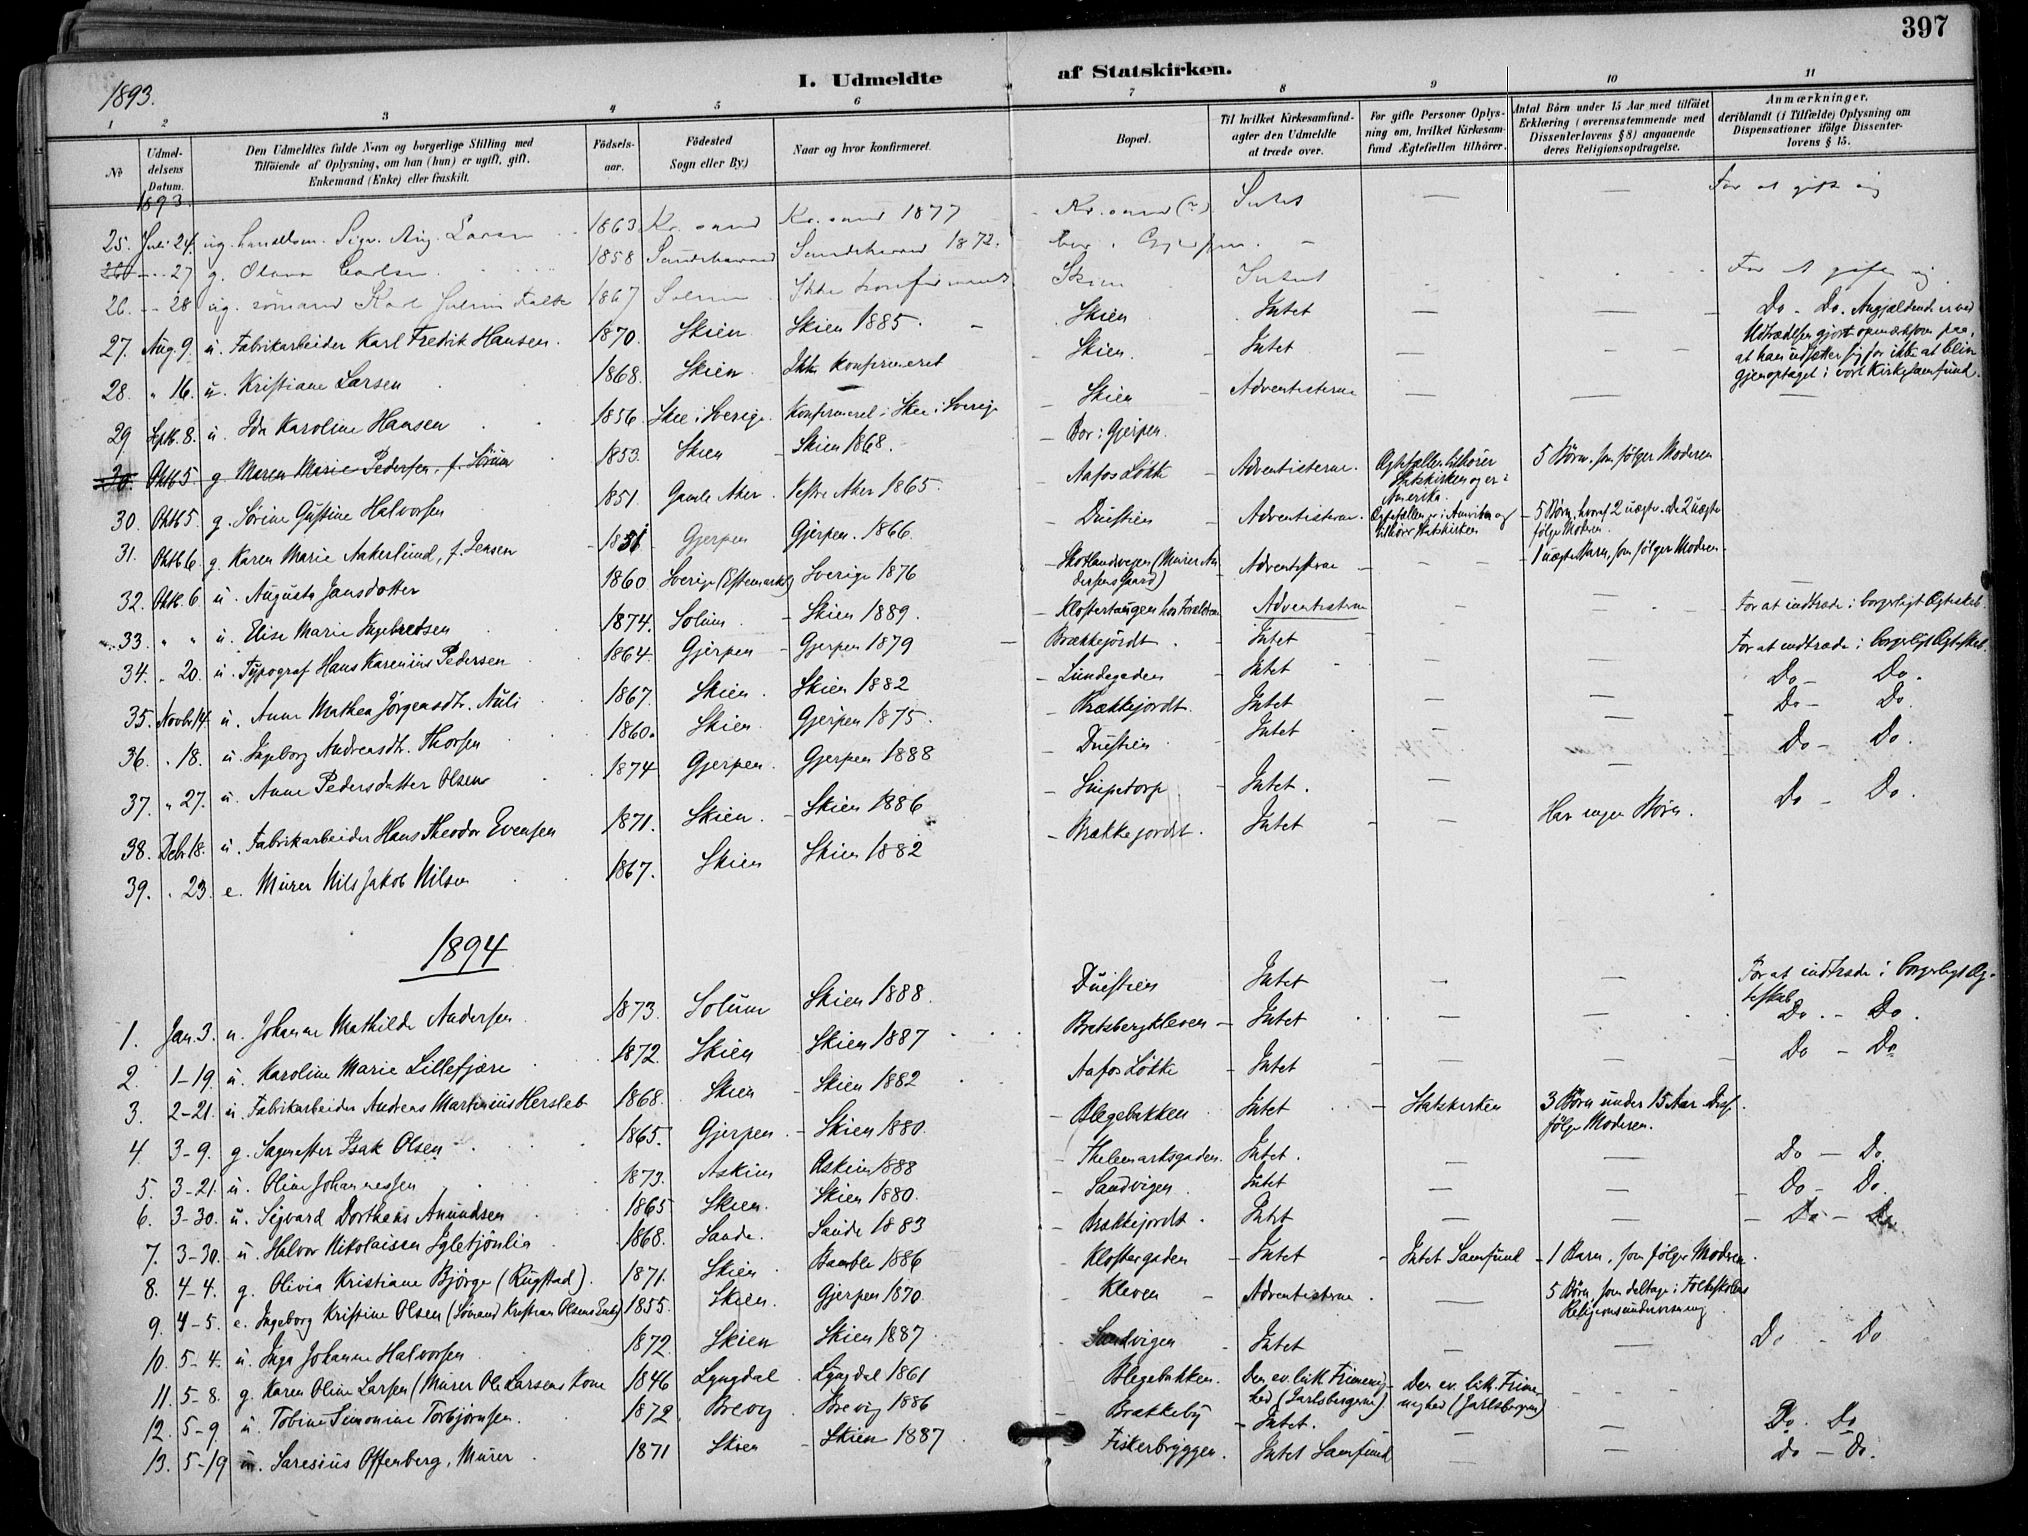 397
I. Udmeldte af Statskirken.
1893.
1 2 3 4 5 6 7 8 9 10 11
No
Udmel-
delsens
Datum.
Den Udmeldtes fulde Navn og borgerlige Stilling med
Tilföiende af Oplysning, om han (hun) er ugift, gift,
Enkemand (Enke) eller fraskilt.
Födsels-
aar.
Födested
Sogn eller By.)
Naar og hvor konfirmeret.
Bopæl.
Til hvilket Kirkesamfund-
agter den Udmeldte
at træde over.
For gifte Personer Oplys-
ning om, hvilket Kirkesam-
fund Ægtefællen tilhörer.
Antal Börn under 15 Aar med tilföiet
Erklæring (overensstemmende med
Dissenterlovens § 8) angaaende
deres Religionsopdragelse.
Anmærkninger,
deriblandt (i Tilfælde) Oplysning om
Dispensationer ifölge Dissenter-
lovens § 15.
1893.
25. Juli 24. ug. Sigv. Aug. Larsen 1863 Kr.sand Kr.sand 1877 Kr.sand (?) Intet — — For at gifte sig
27 g. Olava Carlsen 1858 Sandeherred Sandeherred 1872. bor i Gjerpen. —
26. - 28 ug. sömand Karl Julius Falk 1867 Solum Ikke konfirmeret Skien Intet For at gifte sig
27. Aug. 9. u. Fabrikarbeider Karl Fredik Hansen. 1870. Skien Skien 1885. Skien Intet — — Do - Do. Angjældende er ved
Udtrædelsen gjort opmærksom paa,
at han udsætter sig for ikke at blive
gjenoptaget i vort Kirkesamfund.
28. " 16. u. Kristiane Larsen 1868. Skien Ikke konfirmeret Skien. Intet — —
29 Septb. 8. u. Ida Karoline Hansen 1856. Skee i Sverige. Konfirmeret i Skee i Sverige Skien Adventisterne — — —
30. Oktb 5 g. Maren Marie Pedersen, f. Sörum 1853. Skien Skien 1868. Bor i Gjerpen.
30. Oktb 5. g. Sörine Gustine Halvorsen 1851. Gamle Aker. Vestre Aker 1865. Aafos Lökke Adventisterne. Ægtefællen tilhörer
Statskirken og er i
Amerika. 5 Börn, som fölger Moderen
31. Oktb 6. g. Karen Marie Aakerlund, f. Jensen 1851 Gjerpen Gjerpen. 1866. Duestien Adventisterne. Ægtefællen er i Amerika og
tilhörer Statskirken 5 Börn, hvoraf 2 uægte. De 2 uægte
fölge Moderen.
32. Oktb. 6 u. Augusta Jansdotter 1860 Sverige Sverige 1876 Skotlandsveien (Murer An-
dersens Gaard) Adventisterne — 1 uægte Barn, som fölger Moderen.
33. " " u. Elise Marie Ingebretsen 1874. Solum Skien 1889. Klostertangen hos Forældrene Adventisterne —
34. " 20. u. Typograf Hans Karenius Pedersen 1864. Gjerpen Gjerpen 1879 Brækkejordt. Intet — — For at indtræde i borgerligt Ægteskab.
35. Novbr 14. u. Anne Mathea Jörgensdtr. Auli 1867. Skien. Skien 1882 Lundegaden Intet — — For at indtræde i borgerligt Ægteskab.
36. " 18. u. Ingeborg Andreasdtr. Thorsen 1860. Skien. Gjerpen 1875. Brækkejordt. Intet — — Do - Do.
37. " 27. u. Anne Pedersdatter Olsen 1874 Gjerpen. Gjerpen 1888 Duestien Intet — — Do - Do.
38. Debr 18. u. Fabrikarbeider Hans Theodor Evensen 1871. Skien. Skien 1886 Lnipetorp Intet. — — Do - Do.
39. " 23. e. Murer Nils Jakob Nilsen 1867. Skien Skien 1882 Brækkejordet. Intet — Har ingen Börn. Do - Do.
1894
1. Jan. 3. u. Johanne Mathilde Andersen 1873. Solum Skien 1888. Duestien Intet — — For at indtræde i borgerligt Æg-
teskab
2. 1-19. u. Karoline Marie Lillefjære 1872. Skien Skien 1887 Bratsbergkleven - Intet — — Do. - Do.
3. 2-21. u. Fabrikarbeider Andreas Martinius Hersleb 1868. Skien Skien 1882 Aafos Lökke - Intet — — Do - Do
4. 3-9. g. Sagmester Isak Olsen 1865. Gjerpen. Skien 1880. Blegebakken Intet - Statskirken 3 Börn under 15 Aar. Disse
fölge Moderen.
5. 3-21. u. Oline Johannessen 1873. Askim Askim 1888 Thelemarksgaden. Intet. — — Do - Do.
6. 3-30. u. Sigvard Dortheus Amundsen 1865 Skien. Skien 1880. Sandvigen. Intet — — Do - Do.
7. 3-30. u. Halvor Nikolaisen Igletjönlia 1868. Saude. Saude 1883 Brækkejordt. Intet — — Do - Do.
8. 4-4. g. Olivia Kristiane Björge (Rugstad). 1871. Skien. Bamble 1886 Klostergaden Intet - Intet Samfund - 1 Barn, som fölger Moderen.
9. 4-5. e. Ingeborg Kristine Olsen (Sömand Kristian Olsens Enke) 1855. Skien. Gjerpen 1870 Kleven Adventisterne. — 5 Börn, som deltage i Folkeskolens
Religionsundervisning
10. 5-4. u. Inga Johanne Halvorsen 1872 Skien Skien 1887. Sandvigen Intet — — Do - Do
11. 5-8. g. Karen Oline Larsen (Murer Ole Larsens Kone 1846 Lyngdal Lyngdal 1861 Blegebakken. Den ev. luth. Frimenig-
hed (Jarlsbergerne) Den ev. luth. Frime-
nighed (Jarlsbergerne)
12. 5-9 u. Tobine Simonine Torbjörnsen. 1872. Brevig Brevig 1886 Brækkeby - Intet. — — Do. Do
13. 5-19 u. Saresius Offenberg, Murer 1871 Skien - Skien 1887. Fiskerbryggen. Intet Samfund — — Do - Do.